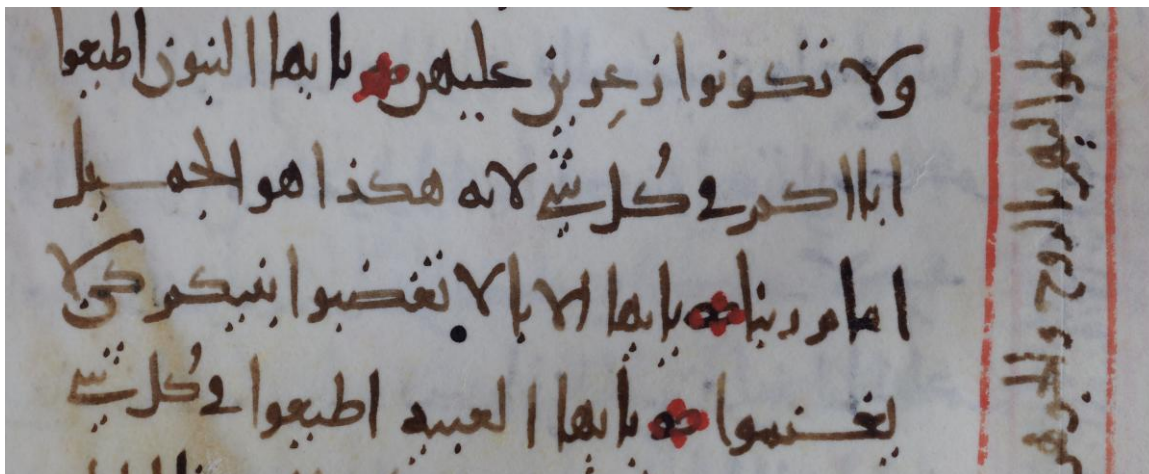 ولا تكونوا زعرين عليهن يايها البنون اطيعوا
ابااكم في كل شي لانه هكذا هو الجميل
امام ربنا يايها الابا لا تغضبوا بنيكم كيلا
يغتموا يايها العبيد اطيعوا في كل شي
بالروح